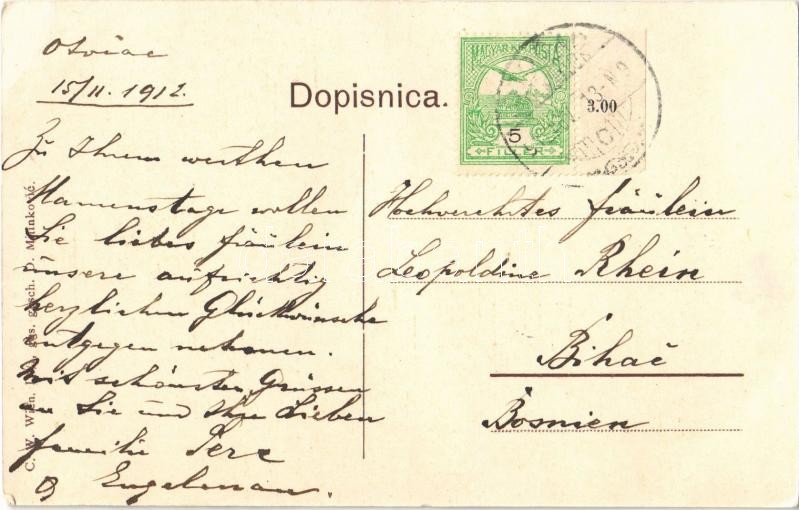 Otočac
15/II. 1912.
Dopisnica.
MAGYAR KIR. POSTA
5
FILLER
3.00
Zu Ihrem werthen
Namenstage wollen
Sie liebes fräulein
unsere aufrichtig
herzlichen Glückwünsche
entgegen nehmen.
Mit schönsten Grüssen
an Sie und Ihre Lieben
familie
Engelman.
Hochverehrtes fräulein
Leopoldine Rhein
Bihać
Bosnien
C. W. Wien. ges. gesch. D. Marinković.